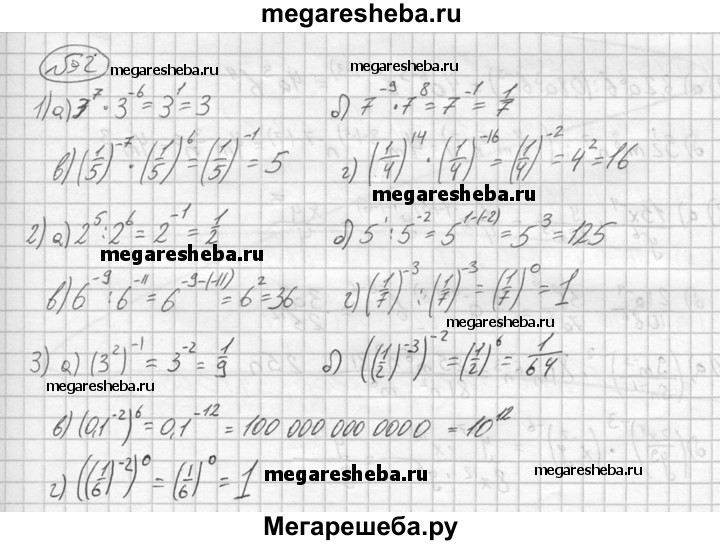 megaresheba.ru
№92 megaresheba.ru megaresheba.ru
1) а) 3^7 · 3^-6 = 3^1 = 3 б) 7^-9 · 7^8 = 7^-1 = 1/7
в) (1/5)^-7 · (1/5)^6 = (1/5)^-1 = 5 г) (1/4)^14 · (1/4)^-16 = (1/4)^-2 = 4^2 = 16
megaresheba.ru
2) а) 2^5 : 2^6 = 2^-1 = 1/2 б) 5^1 : 5^-2 = 5^1-(-2) = 5^3 = 125
megaresheba.ru
в) 6^-9 : 6^-11 = 6^-9-(-11) = 6^2 = 36 г) (1/7)^-3 : (1/7)^-3 = (1/7)^0 = 1
megaresheba.ru
3) а) (3^2)^-1 = 3^-2 = 1/9 б) ((1/2)^-3)^-2 = (1/2)^6 = 1/64
megaresheba.ru
в) (0,1^-2)^6 = 0,1^-12 = 100 000 000 0000 = 10^12
г) ((1/6)^-2)^0 = (1/6)^0 = 1 megaresheba.ru megaresheba.ru
Мегарешеба.ру